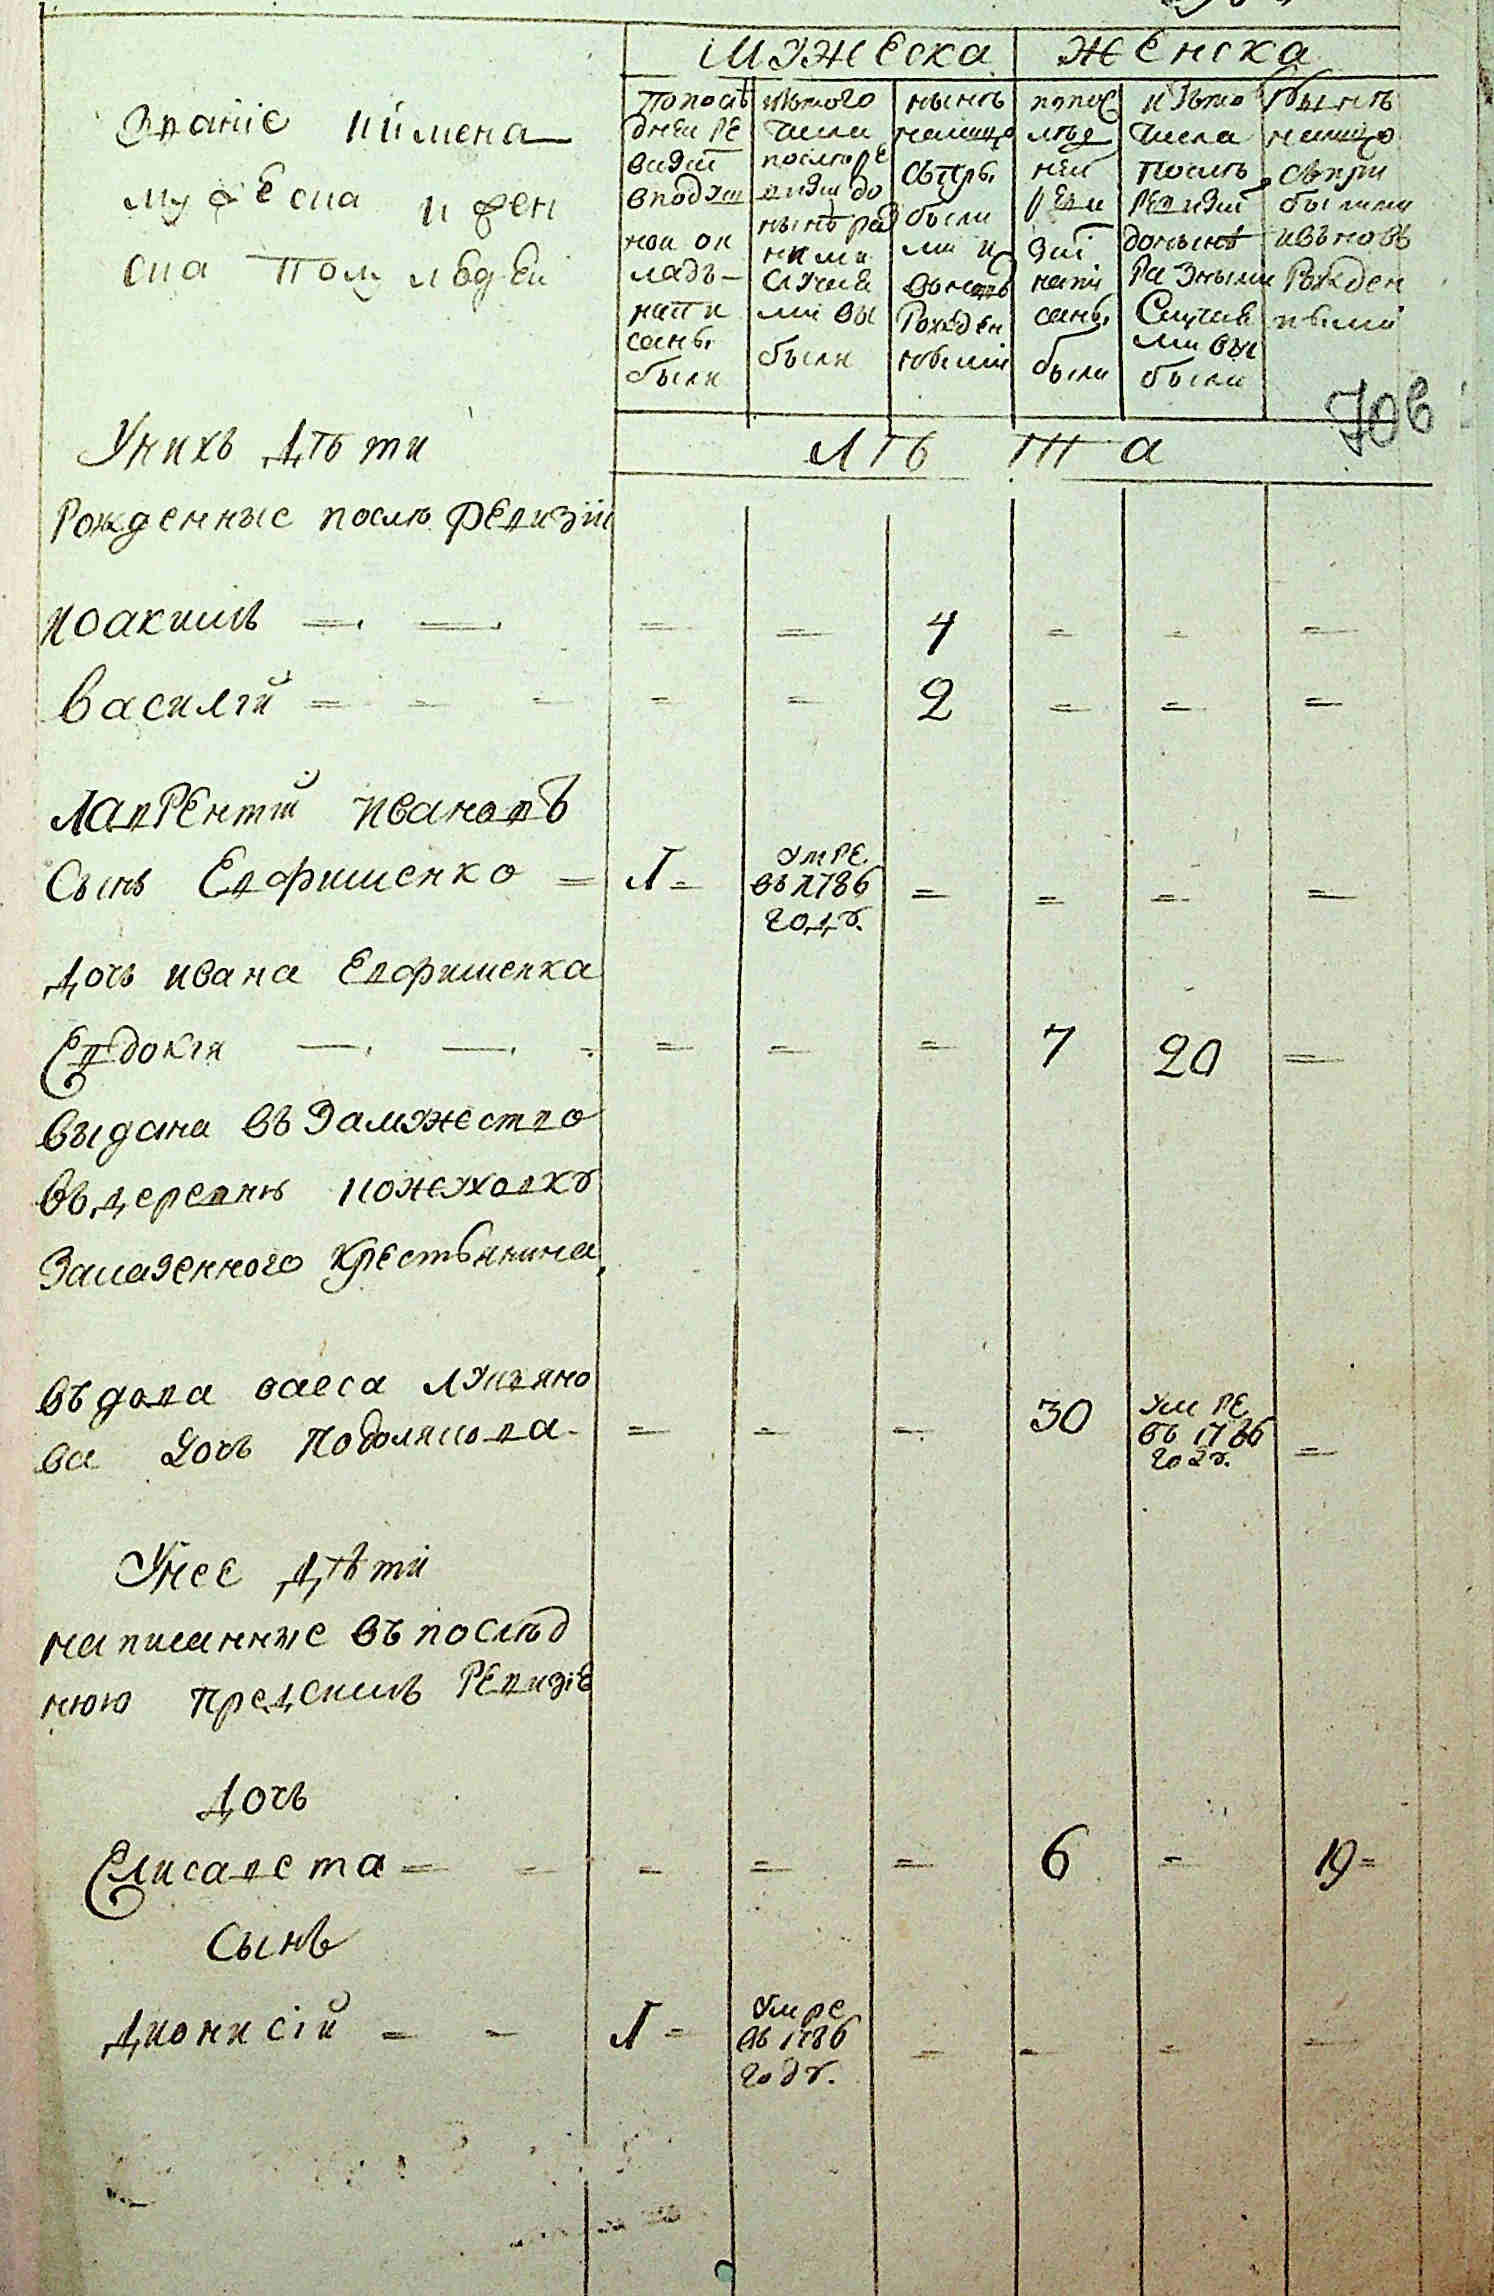 Мужеска Женска
Званїе и имена
мужеска и жен
ска полу людей
Попосле
дней ре
визїи
вподуш
ной ок
ладъ
напи
саны
были
изтого
числа
после ре
визїи до
нынѣ раз
ними
случая
ми вы
были
нынѣ
налицо
съ при
были
ми и
вновь
рожден
ными
попос
лѣд
ней
реви
зїи
напи
саны
были
изъ то
числа
послѣ
ревизїи
донынѣ
разными
случая
ми вы
были
нынѣ
налицо
съ при
былыми
извновь
рожден
ными
70в
Лѣта
Унихъ дѣти
Рожденные послѣ ревизїи
Иоакимъ = = = = 4 = = =
Василїй = = = = = 2 = = =
Лаврентїй Ивановъ
Сынъ Евфименко = 1 = умре въ 1786 году. = = = =
Дочь Ивана Евфименка
Евдокїя — — - = = = 7 20 =
выдана въ замужество
въ деревню Кожуховку
Заказенного крестьянина
въдова Васса Лукьяно
ва дочь Подолякова - = = = 30 умре въ 1786 году. =
Унее дѣти
написанные въ послѣд
нюю предсимъ ревизїе
Дочь
Елисавета = = = = = 6 = 19 =
Сынъ
Дионисїй = = 1 = умре въ 1786 году. = = = =